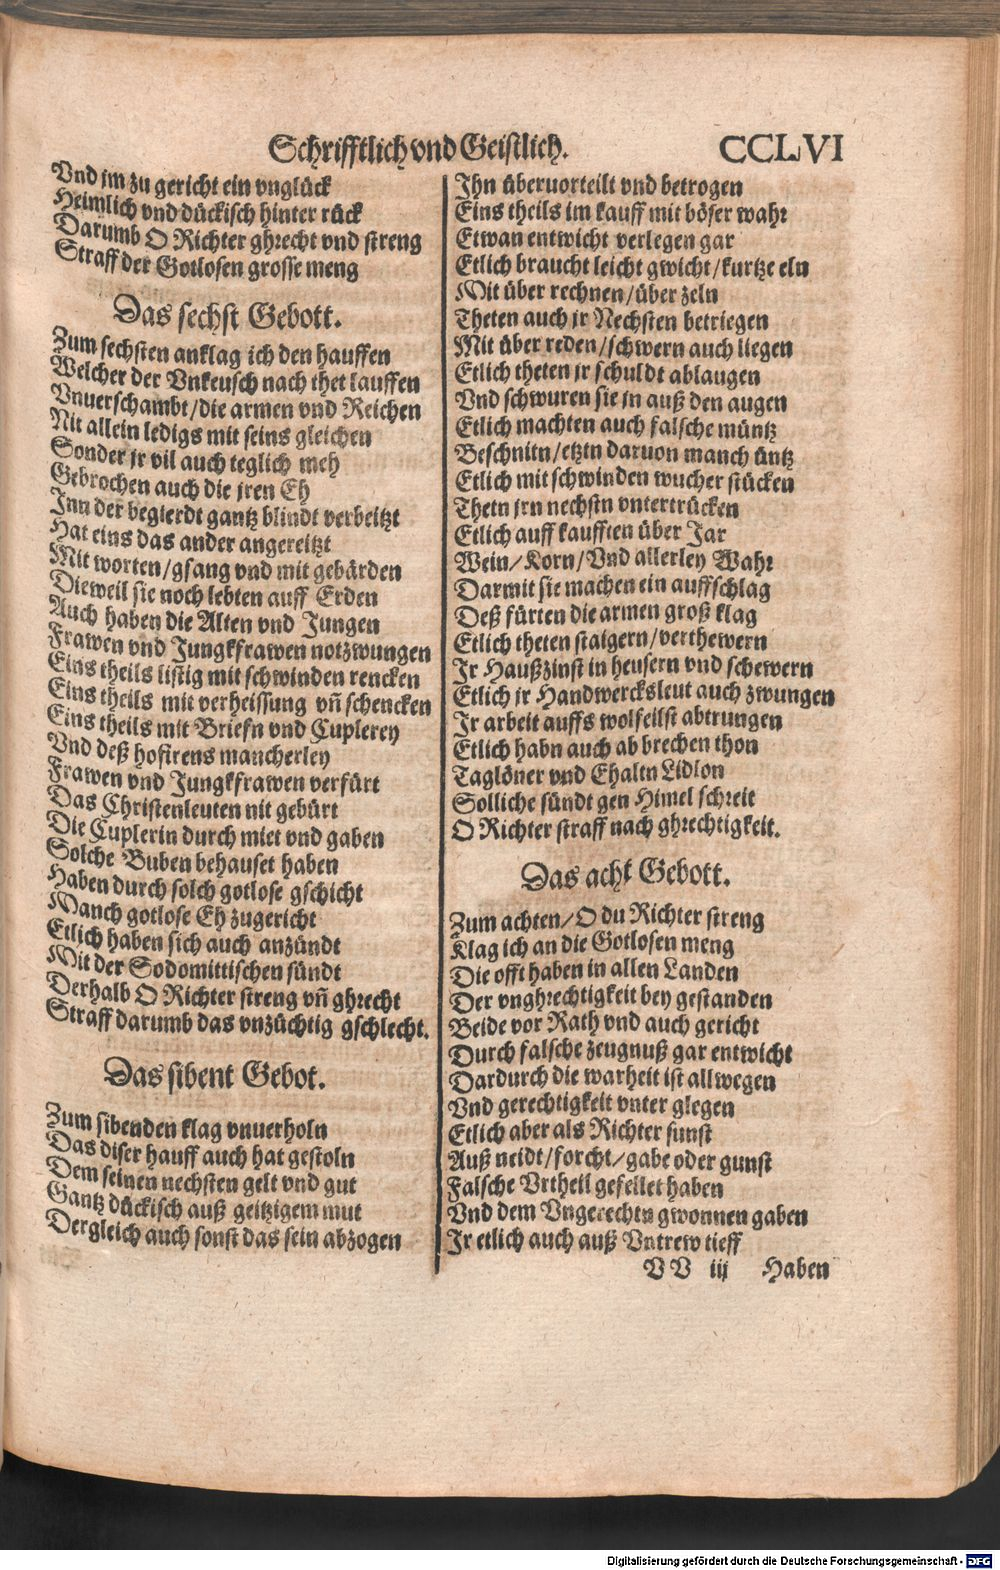 Schrifftlich vnd Geistlich. CCLVI
Vnd jm zu gericht ein vnglück
Heimlich vnd dückisch hinter rück
Darumb O Richter ghrecht vnd streng
Straff der Gotlosen grosse meng
Das sechst Gebott.
Zum sechsten anklag ich den hauffen
Welcher der Vnkeusch nach thet lauffen
Vnuerschambt/die armen vnd Reichen
Nit allein ledigs mit seins gleichen
Sonder jr vil auch teglich meh
Gebrochen auch die jren Eh
Inn der begierdt gantz blindt verbeitzt
Hat eins das ander angereitzt
Mit worten/gsang vnd mit gebärden
Dieweil sie noch lebten auff Erden
Auch haben die Alten vnd Jungen
Frawen vnd Jungkfrawen notzwungen
Eins theils listig mit schwinden rencken
Eins theils mit verheissung vñ schencken
Eins theils mit Briefn vnd Cuplerey
Vnd deß hofirens mancherley
Frawen vnd Jungkfrawen verfürt
Das Christenleuten nit gebürt
Die Cuplerin durch miet vnd gaben
Solche Buben behauset haben
Haben durch solch gotlose gschicht
Manch gotlose Eh zugericht
Etlich haben sich auch anzündt
Mit der Sodomittischen sündt
Derhalb O Richter streng vñ ghrecht
Straff darumb das vnzüchtig gschlecht.
Das sibent Gebot.
Zum sibenden klag vnuerholn
Das diser hauff auch hat gestoln
Dem seinen nechsten gelt vnd gut
Gantz dückisch auß geitzigem mut
Dergleich auch sonst das sein abzogen
Ihn überuorteilt vnd betrogen
Eins theils im kauff mit böser wahr
Etwan entwicht verlegen gar
Etlich braucht leicht gwicht/kurtze eln
Mit über rechnen/über zeln
Theten auch jr Nechsten betriegen
Mit über reden/schwern auch liegen
Etlich theten jr schuldt ablaugen
Vnd schwuren sie jn auß den augen
Etlich machten auch falsche müntz
Beschnitn/etztn daruon manch üntz
Etlich mit schwinden wucher stücken
Thetn jrn nechstn vntertrücken
Etlich auff kaufften über Jar
Wein/Korn/Vnd allerley Wahr
Darmit sie machen ein auffschlag
Deß fürten die armen groß klag
Etlich theten staigern/verthewern
Jr Haußzinst in heusern vnd schewern
Etlich jr Handwercksleut auch zwungen
Jr arbeit auffs wolfeilst abtrungen
Etlich habn auch ab brechen thon
Taglöner vnd Ehaltn Lidlon
Solliche sündt gen Himel schreit
O Richter straff nach ghrechtigkeit.
Das acht Gebott.
Zum achten/O du Richter streng
Klag ich an die Gotlosen meng
Die offt haben in allen Landen
Der vnghrechtigkeit bey gestanden
Beide vor Rath vnd auch gericht
Durch falsche zeugnuß gar entwicht
Dardurch die warheit ist allwegen
Vnd gerechtigkeit vnter glegen
Etlich aber als Richter sunst
Auß neidt/forcht/gabe oder gunst
Falsche Vrtheil gefellet haben
Vnd dem Vngerechtn gwonnen gaben
Jr etlich auch auß Vntrew tieff
VV iij Haben
Digitalisierung gefördert durch die Deutsche Forschungsgemeinschaft - DFG